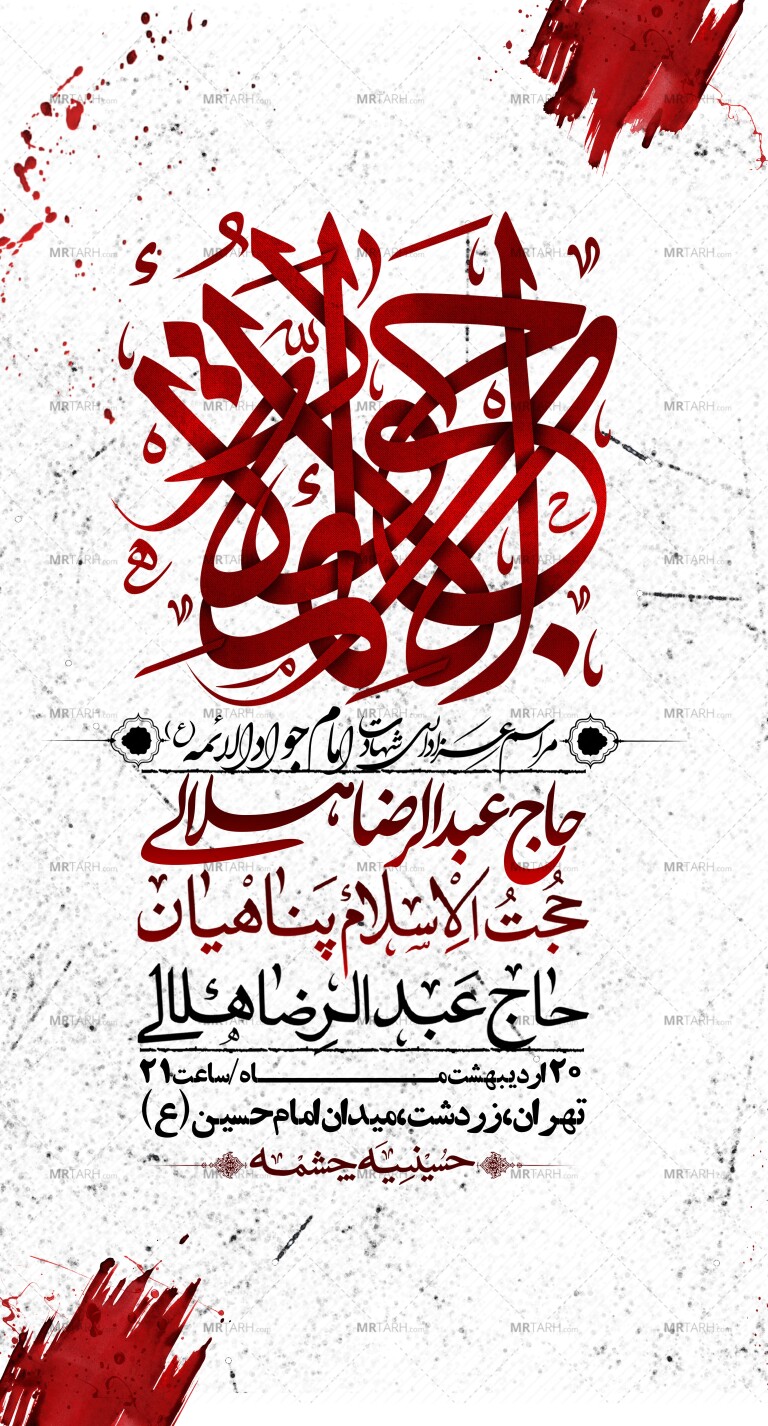 جواد الائمه
مراسم عزاداری شهادت امام جواد الائمه (ع)
حاج عبدالرضا هلالی
حُجتُ الاِسلام پَناهیان
حاج عَبدالرِضا هلالی
۲۰ اردیبهشت مـــاه/ساعت ۲۱
تهران، زردشت، میدان امام حسین (ع)
حُسِینِیَه چِشمه
MRTARH.com